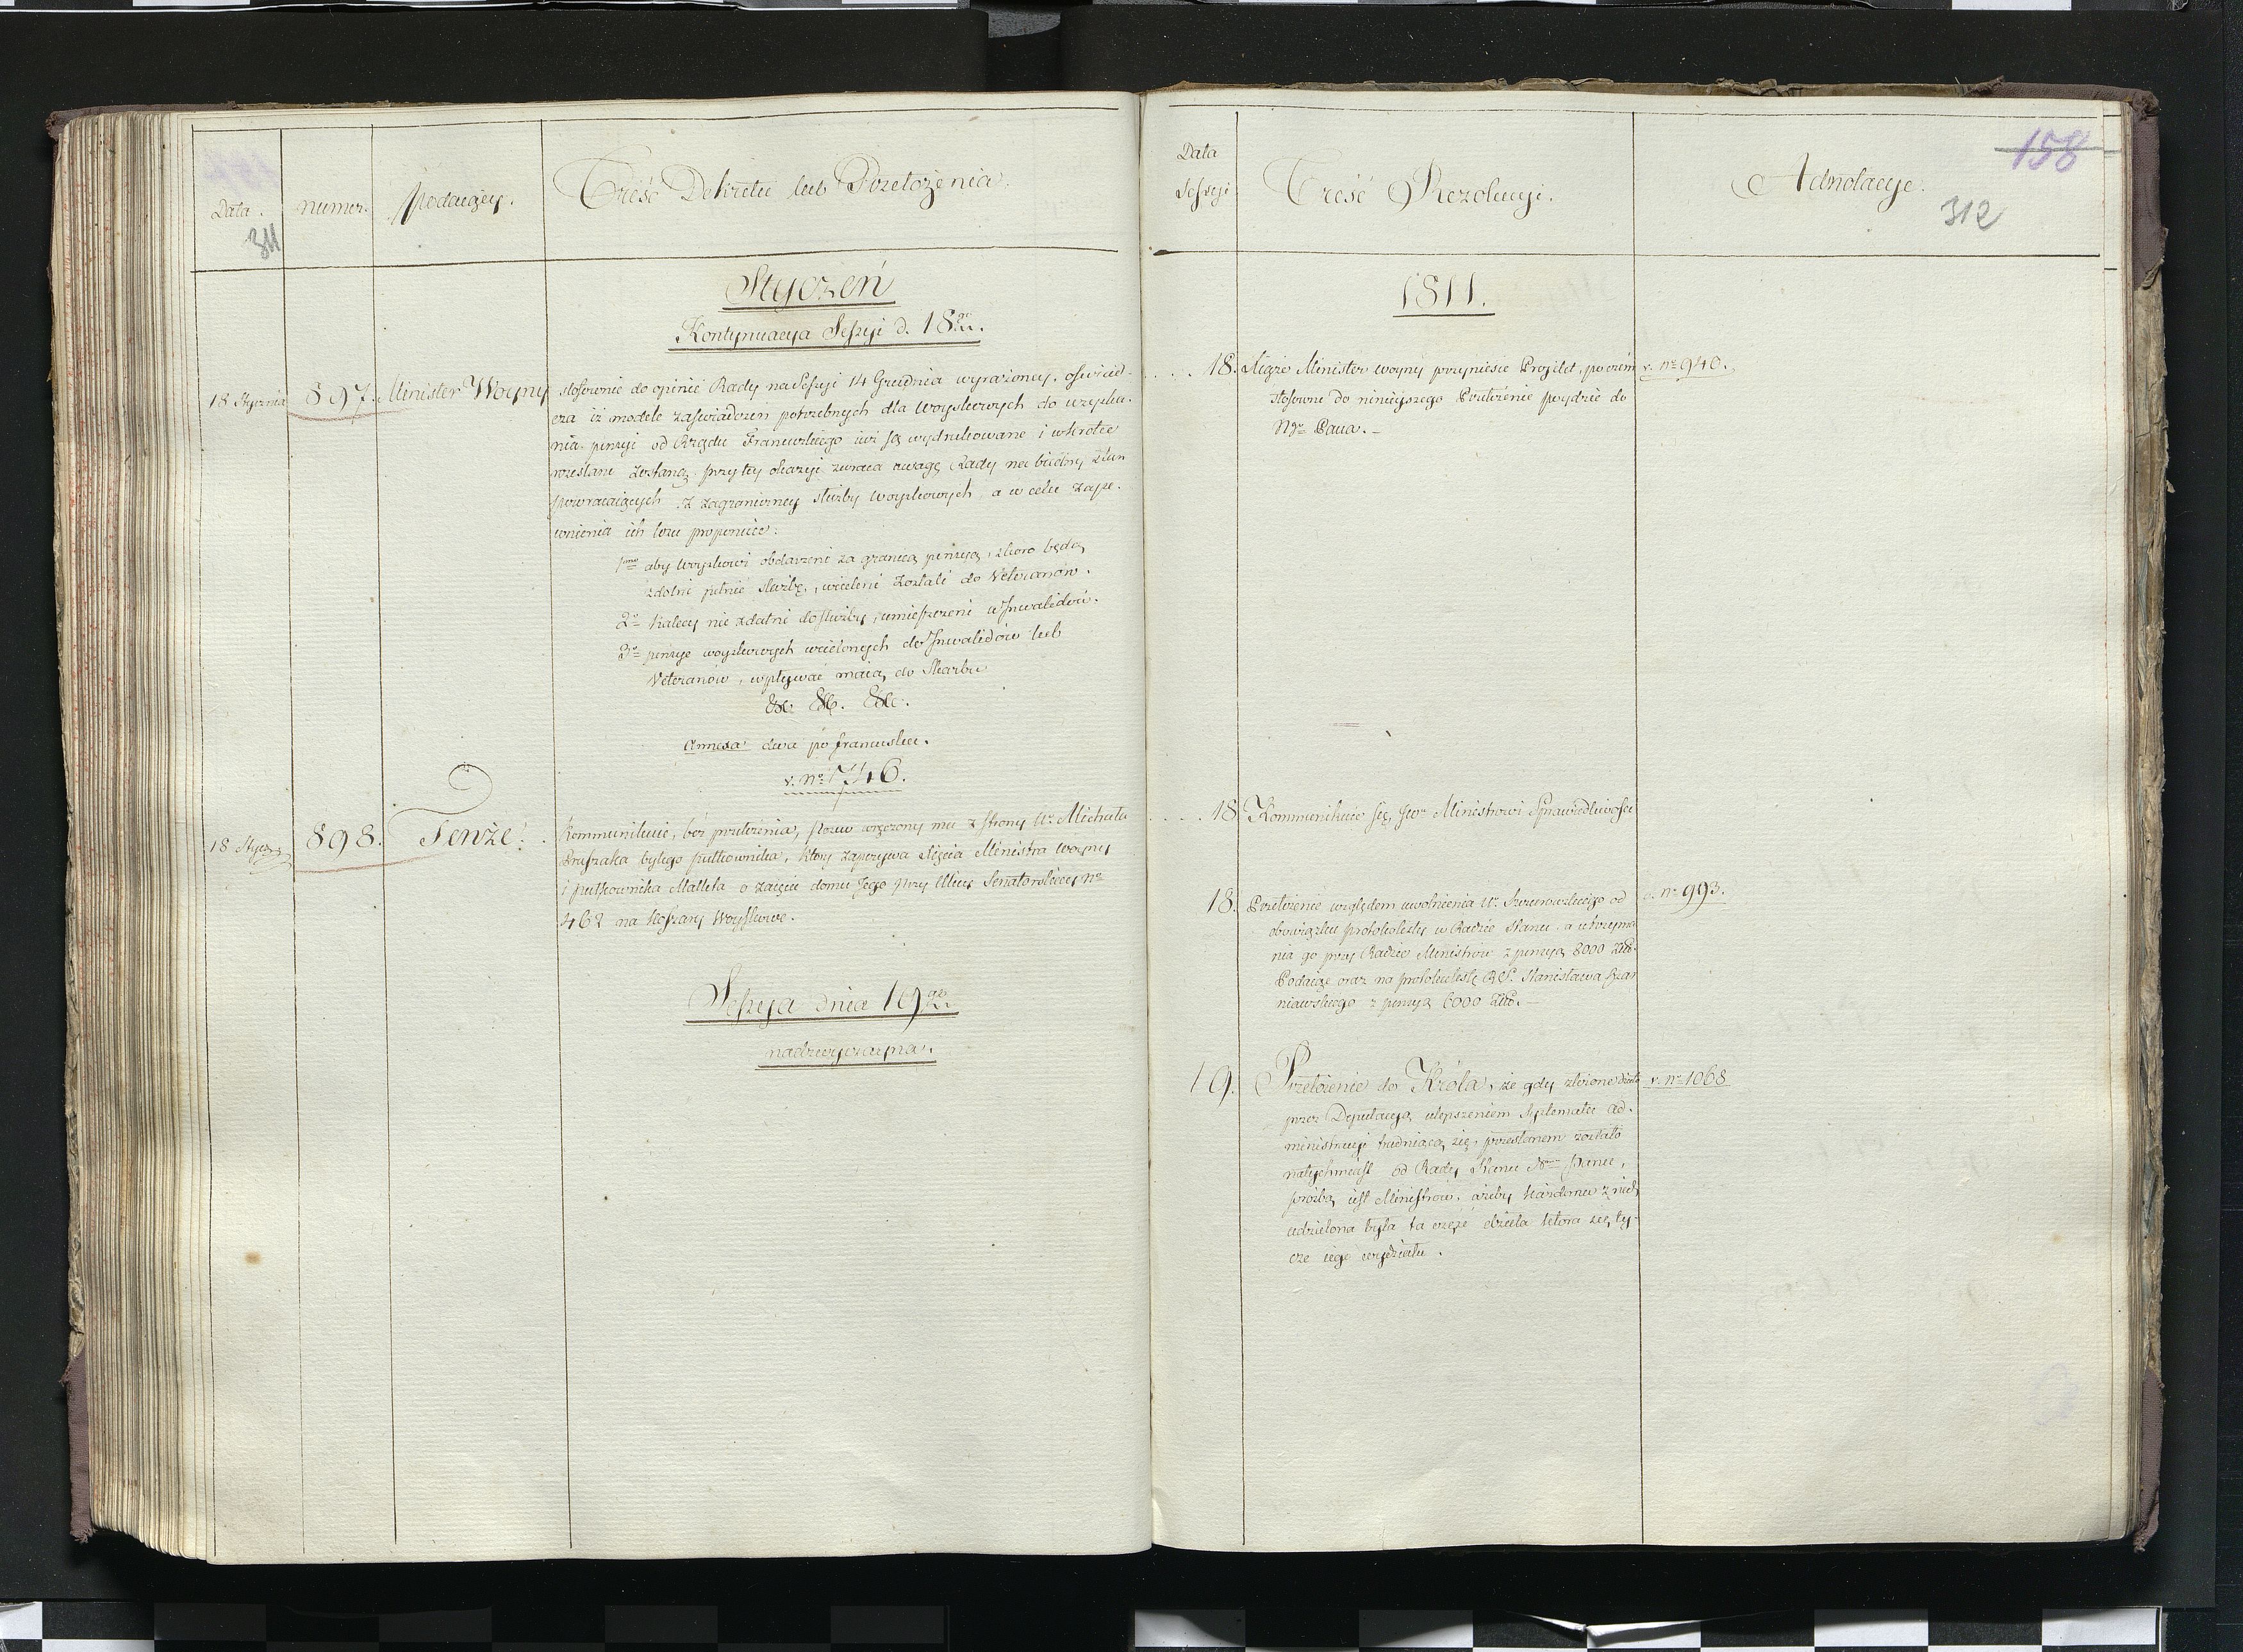 Data.
numer.
Podaiący.
Treść Dekretu lub Przełożenia.
311
Styczeń
Kontynuacya Sessyi d. 18go.
18 Stycznia
897.
Minister Woyny
stosownie do opinii Rady na Sessyi 14 Grudnia wyrażoney, oświad-
cza iż modele zaświadczeń potrzebnych dla Woyskowych do uzyska-
nia pensyi od Rządu Francuzkiego iuż są wydrukowane i wkrótce
rozesłane zostaną. przy tey okazyi zwraca uwagę Rady na
powracaiących z zagraniczney służby woyskowych, a w celu zape-
wnienia ich losu proponuie:
1mo aby Woyskowi obdarzeni za granicą pensyą, skoro będą
zdolni pełnić służbę, wcieleni zostali do Veteranów.
2o Kalecy nie zdatni do służby, umieszczeni u Inwalidów.
3o pensye woyskowych wcielonych do Inwalidów lub
Veteranów, wpływać maią do Skarbu
&c. &c. &c.
Annexa dwa po francusku.
v. No 1746.
18 Stycz.
898.
Tenże.
Kommunikuie, bez przełożenia, pozew wręczony mu z strony Ur. Michała
byłego pułkownika, który zapozywa Xięcia Ministra Woyny
i pułkownika Malleta o zaięcie domu Jego przy Ulicy Senatorskiey No
462 na Koszary Woyskowe.
Sessya dnia 19go.
nadzwyczayna.
Data
Sessyi
Treść Rezolucyi.
Adnotacye.
158
312
1811.
18. Xiąże Minister woyny przyniesie Proiekt, poczém
v. no 940.
stosowne do ninieyszego Przełożenie poydzie do
Ngo Pana.
18. Kommunikuie się Jwmu Ministrowi Sprawiedliwości
18. Przełożenie względem uwolnienia Ur. od
v. no 993.
obowiązku protokolisty w Radzie Stanu, a utrzyma
nia go przy Radzie Ministrów z pensyą 8000 Złł.
Podaiąc oraz na protokulistę R.S. Stanisława
niawskiego z pensyą 6000 Złł.
19. Przełożenie do Króla, że gdy złożone dzieło
v. no 1068
przez Deputacyą ulepszeniem systematu ad-
ministracyi trudniącą się, przesłanem zostało
natychmiast od Rady Stanu Nmu Panu,
prozbą iest Ministrów, ażeby każdemu z nich
udzielona była ta część dzieła która się ty-
cze iego wydziału.